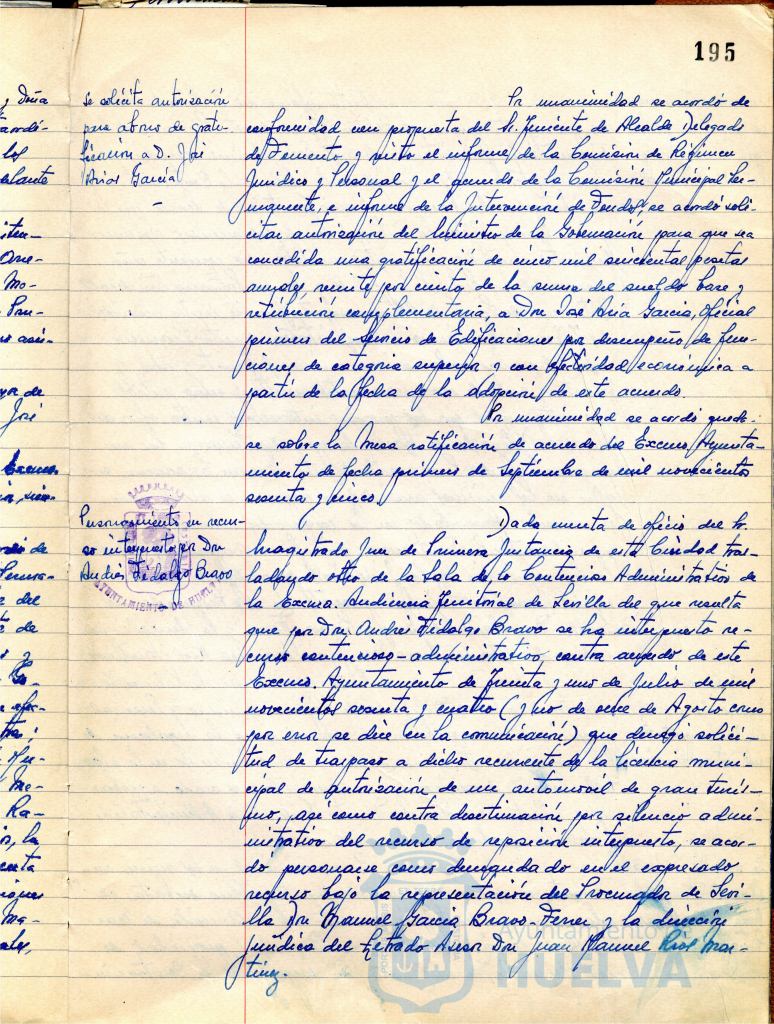 195
y Doña
los
José
Excmo.
Mo-
Me-
Ra-
Ma-
Se solicita autorización
para abono de grati-
ficación a D. José
Arias García
Por unanimidad se acordó de
conformidad con propuesta del Sr. Teniente de Alcalde Delegado
de Fomento y visto el informe de la Comisión de Régimen
Jurídico y Personal y el acuerdo de la Comisión Municipal Per-
manente, e informe de la Intervención de Fondos, se acordó soli-
citar autorización del Ministro de la Gobernación para que sea
concedida una gratificación de cinco mil seiscientas pesetas
anuales, veinte por ciento de la suma del sueldo base y
retribución complementaria, a Don José Aria García, Oficial
primero del Servicio de Edificaciones por desempeño de fun-
ciones de categoría superior y con efectividad económica a
partir de la fecha de la adopción de este acuerdo.
Por unanimidad se acordó quede-
se sobre la Mesa ratificación de acuerdo del Excmo. Ayunta-
miento de fecha primero de Septiembre de mil novecientos
sesenta y cinco
Personamiento en recur-
so interpuesto por Don
Andrés Hidalgo Bravo
AYUNTAMIENTO DE HUELVA
Dada cuenta de oficio del Sr.
Magistrado Juez de Primera Instancia de esta Ciudad tras-
ladando otro de la Sala de lo Contencioso Administrativo de
la Excma. Audiencia Territorial de Sevilla del que resulta
que por Don Andrés Hidalgo Bravo se ha interpuesto re-
curso contencioso-administrativo, contra acuerdo de este
Excmo. Ayuntamiento de treinta y uno de Julio de mil
novecientos sesenta y cuatro (y no de once de Agosto como
por error se dice en la comunicación) que denegó solici-
tud de traspaso a dicho recurrente de la licencia muni-
cipal de autorización de un automóvil de gran turis-
mo, así como contra desestimación por silencio admi-
nistrativo del recurso de reposición interpuesto, se acor-
dó personarse como demandado en el expresado
recurso bajo la representación del Procurador de Sevi-
lla Don Manuel García Bravo-Ferrer y la dirección
jurídica del Letrado Asesor Don Juan Manuel Riol Mar-
tínez.
Ayuntamiento de
HUELVA